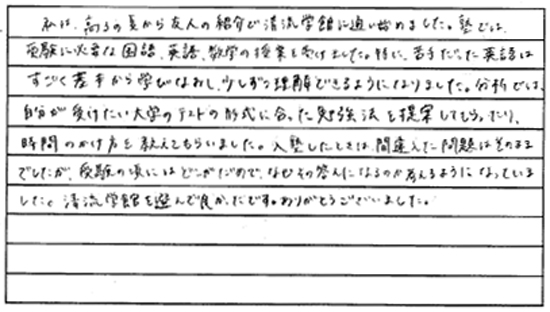 私は、高3の夏から友人の紹介で清流学館に通い始めました。塾では、
受験に必要な国語、英語、数学の授業を受けました。特に、苦手だった英語は
すごく基本から学びなおし、少しずつ理解できるようになりました。分析では、
自分が受けたい大学のテストの形式に合った勉強法を提案してもらったり、
時間のかけ方を教えてもらいました。入塾したときは、間違えた問題はそのまま
でしたが、受験の頃にはどこがだめで、なぜその答えになるのか考えるようになっていま
した。清流学館を選んで良かったです。ありがとうございました。